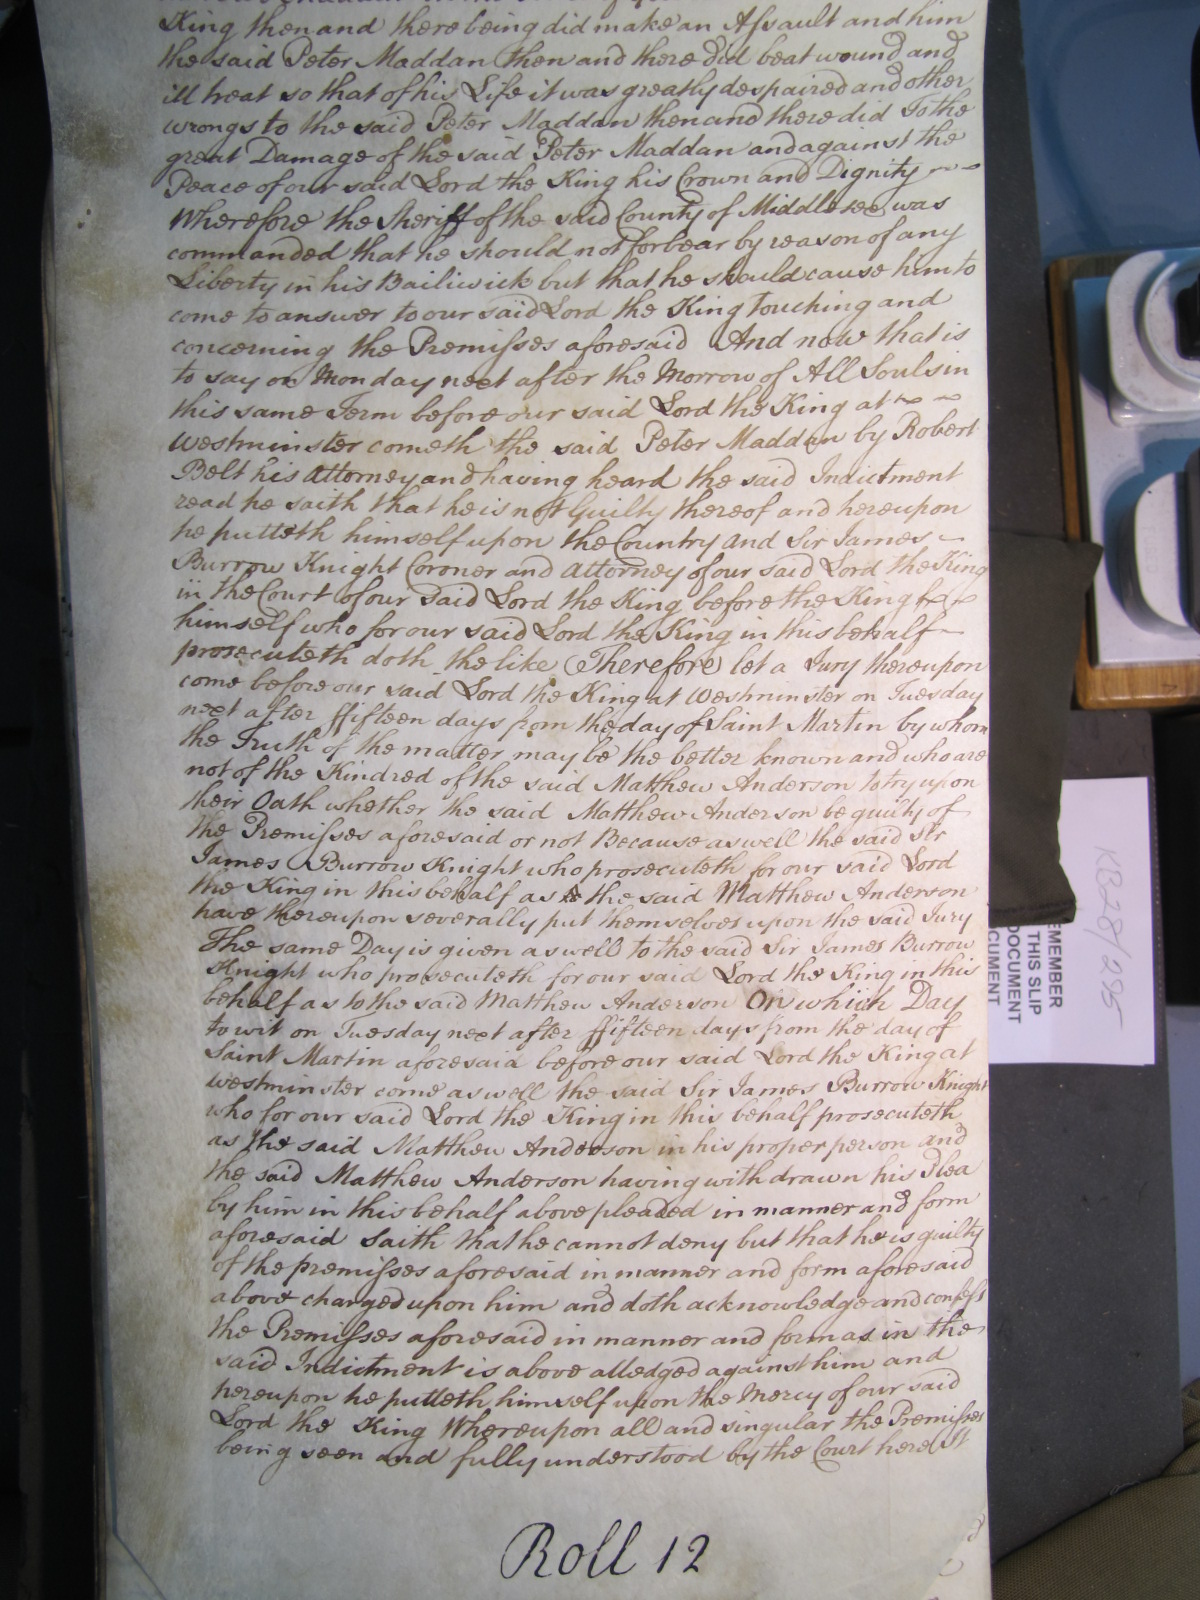 King then and there being did make an Assault and him
the said Peter Maddan then and there did beat wound and
ill treat so that of his Life it was greatly despaired and other
wrongs to the said Peter Maddan then and there did To the
great Damage of the said Peter Maddan and against the
Peace of our said Lord the King his Crown and Dignity
Wherefore the Sheriff of the said County of Middlesex was
commanded that he should not forbear by reason of any
Liberty in his Bailiwick but that he should cause him to
come to answer to our said Lord the King touching and
concerning the Premisses aforesaid And now that is
to say on Monday next after the Morrow of All Souls in
this same Term before our said Lord the King at
Westminster cometh the said Peter Maddan by Robert
Belt his Attorney and having heard the said Indictment
read he saith that he is not Guilty thereof and hereupon
he putteth himself upon the Country and Sir James
Burrow Knight Coroner and Attorney of our said Lord the King
in the Court of our said Lord the King before the King
himself who for our said Lord the King in this behalf
prosecuteth doth the like Therefore let a Jury thereupon
come before our said Lord the King at Westminster on Tuesday
next after ffifteen days from the day of Saint Martin by whom
the Truth of the matter may be the better known and who are
not of the Kindred of the said Matthew Anderson to try upon
their Oath whether the said Matthew Anderson be guilty of
the Premisses aforesaid or not Because aswell the said Sir
James Burrow Knight who prosecuteth for our said Lord
the King in this behalf as the said Matthew Anderson
have thereupon severally put themselves upon the said Jury
The same Day is given aswell to the said Sir James Burrow
Knight who prosecuteth for our said Lord the King in this
behalf as to the said Matthew Anderson On which Day
to wit on Tuesday next after ffifteen days from the day of
Saint Martin aforesaid before our said Lord the King at
Westminster come aswell the said Sir James Burrow Knight
who for our said Lord the King in this behalf prosecuteth
as the said Matthew Anderson in his proper person and
the said Matthew Anderson having withdrawn his Plea
by him in this behalf above pleaded in manner and form
aforesaid Saith that he cannot deny but that he is guilty
of the premisses aforesaid in manner and form aforesaid
above charged upon him and doth acknowledge and confess
the Premisses aforesaid in manner and form as in the
said Indictment is above alledged against him and
hereupon he putteth himself upon the Mercy of our said
Lord the King Whereupon all and singular the Premisses
being seen and fully understood by the Court here It
Roll 12
KB28/295
EMEMBER
THIS SLIP
DOCUMENT
CUMENT